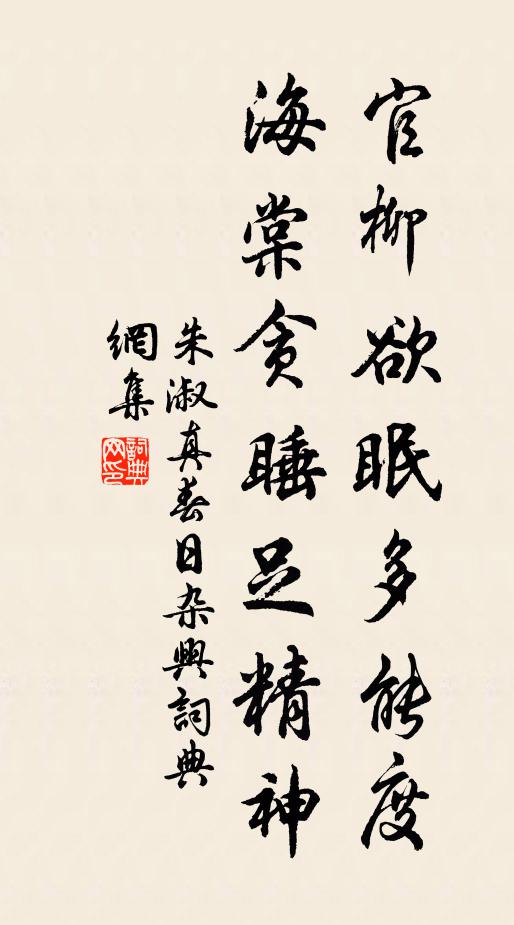 官柳欲眠多能度
海棠貪睡足精神
朱淑真春日杂興詞典
網集
詞典
网印